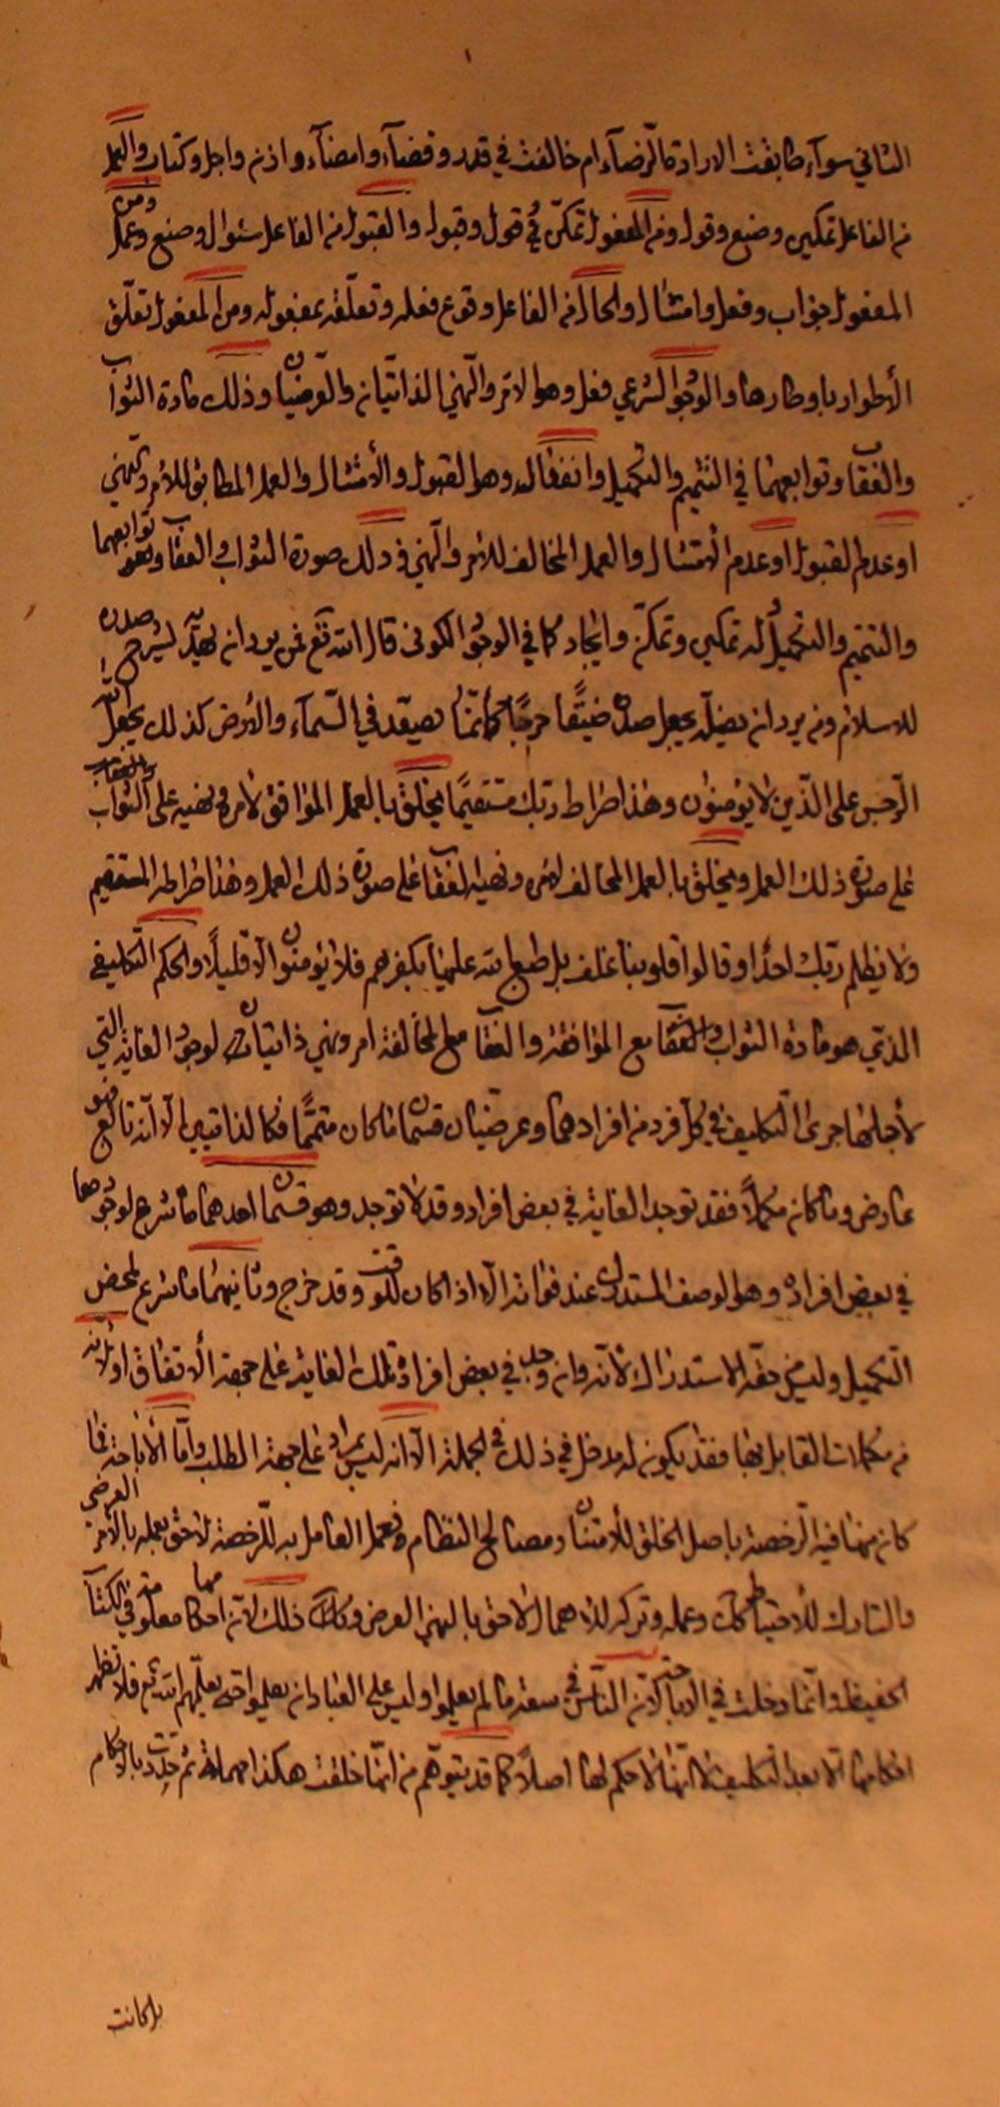 الثاني سوآء طابقت الارادة الرّضآء ام خالفت في قدر وقضآء وامضآء واذن واجل وكتاب والعمل
من الفاعل تمكين وصنع وقول ومن المفعول تمكّن في قول وقبول والقبول من الفاعل سئوال وصنع وعمل ومن
المفعول جواب وفعل وامتثال والحال من الفاعل وقوع فعله وتعلّقه بمفعوله ومن المفعول تعلّق
الأطوار باوطارها والوجود الشرعي فعل وهو الامر والنّهي الذاتيان والعرضيان وذلك مادة الثواب
والعقاب وتوابعهما في التتميم والتكميل وانفعال وهو القبول والأمتثال والعمل المطابق للأمر والنهي
او عدم القبول او عدم الأمتثال والعمل المخالف للأمر والنّهي وذلك صورة الثواب والعقاب وتوابعهما
والتتميم والتكميل له تمكين وتمكّن وايجاد كما في الوجود الكوني قال الله تع فمن يرد ان يهديه يشرح صدره
للاسلام ومن يرد ان يضلّه يجعل صدره ضيّقا حرجًا كأنّما يصعّد في السّمآء والأرض كذلك يجعل الله
الرّجس على الذّين لا يؤمنون وهذا صراط ربّك مستقيمًا يخلق بالعمل الموافق لأمره ونهيه على الثواب والعقاب
على صورة ذلك العمل ويخلق بالعمل المخالف لأمره ونهيه العقاب على صورة ذلك العمل وهذا صراطه المستقيم
ولا يظلم ربّك احدًا وقالوا قلوبنا غلف بل طبع الله عليها بكفرهم فلا يؤمنون الّا قليلًا والحكم التّكليفي
الذي هو مادة الثواب والعقاب مع الموافقة والعقاب مع المخالفة امر ونهي ذاتيان لوجود الغاية التي
لأجلها جرى التّكليف في كلّ فرد من افرادهما وعرضيان قسمان ما كان متمّمًا فكالذاتيين الّا انّه تابع فهو
عارض وما كان مكمّلًا فقد توجد الغاية في بعض افراد وقد لا توجد وهو قسمان احدهما ما شرع لوجودها
في بعض افراده وهو الوصف المستدرك عند فواته الّا اذا كان للوقت وقد خرج وثانيهما ما شرع لمحض
التّكميل وليس حقّه الاستدراك لأنّه وان وجد في بعض افراده تلك الغاية على جهة الأتفاق او لأنه
من مكملات القابل لها فقد يكون له مدخل في ذلك في الجملة الّا انّه ليس بمراد على جهة الطلب وامّا الأباحة فما
كان منها فيه الرّخصة باصل الخلق للأمتنان ومصالح النظام فعمل العامل به للّرخصة لاحق بعمله بالأمر العرضي
والتارك للأحتياط كك وعمله وتركه للاهمال لاحق بالنهي العرضي وكك ذلك لأنّ احكامها معلومة في الكتاب
الحفيظ وانّما دخلت في الاباحة لأنّ النّاس في سعة ما لم يعلموا وليس على العباد ان يعلموا حتى يعلّمهم الله ثم فلا تظهر
احكامها الّا بعد التّكليف لا انّها لا حكم لها اصلًا كما قد يتوهّم من انّها خلقت هكذا مهملة ثم جدّدت بالاحكام
بل كانت